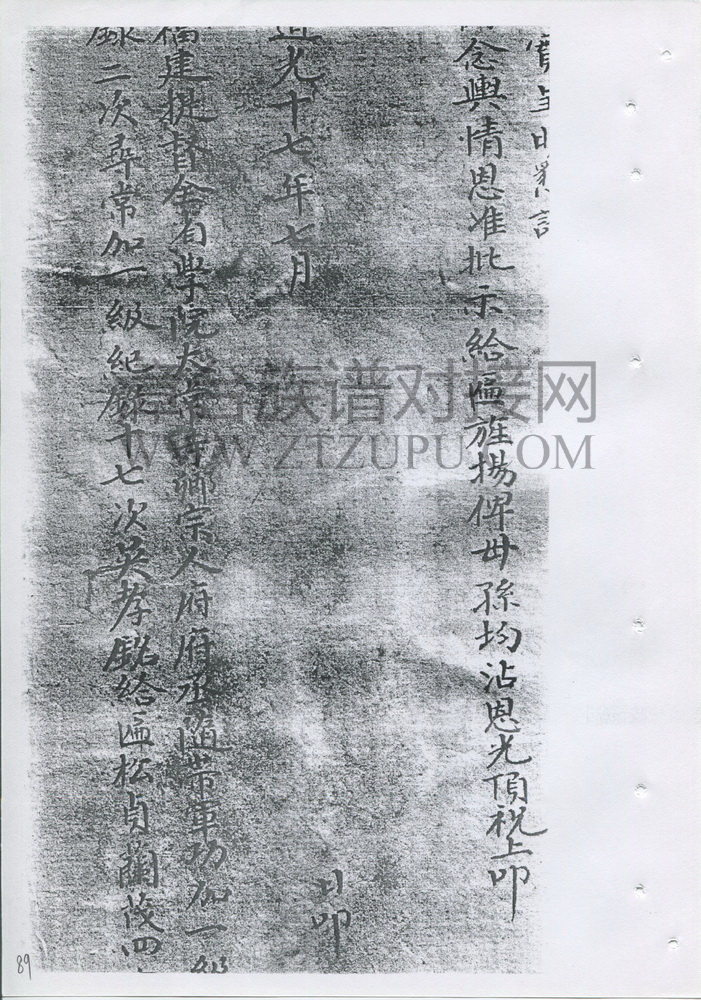 念輿情恩准批示給匾旌揚俾毋孫均沾恩光頂祝上叩
道光十七年七月 日叩
福建提督全省學院太常寺卿宗人府府丞隨帶軍功加一級
錄二次尋常加一級紀錄十七次吳孝銘給匾松貞蘭茂四
台族谱对接网
WWW.ZTZUPU.COM
89